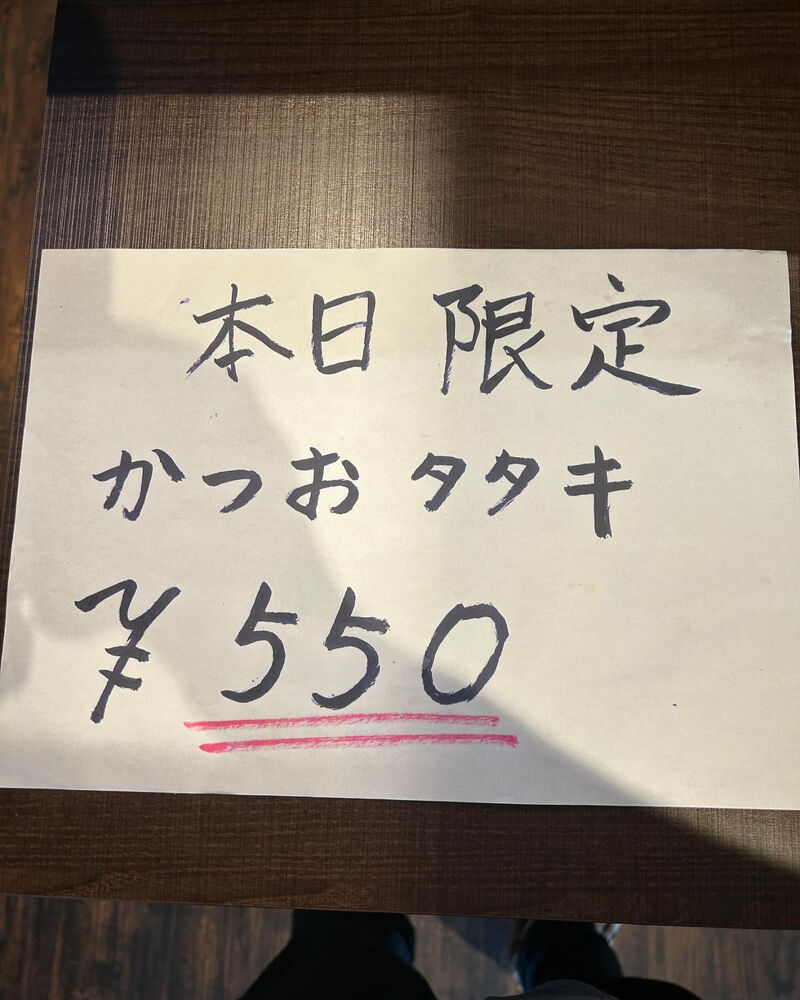 本日 限定
かつお タタキ
¥ 550